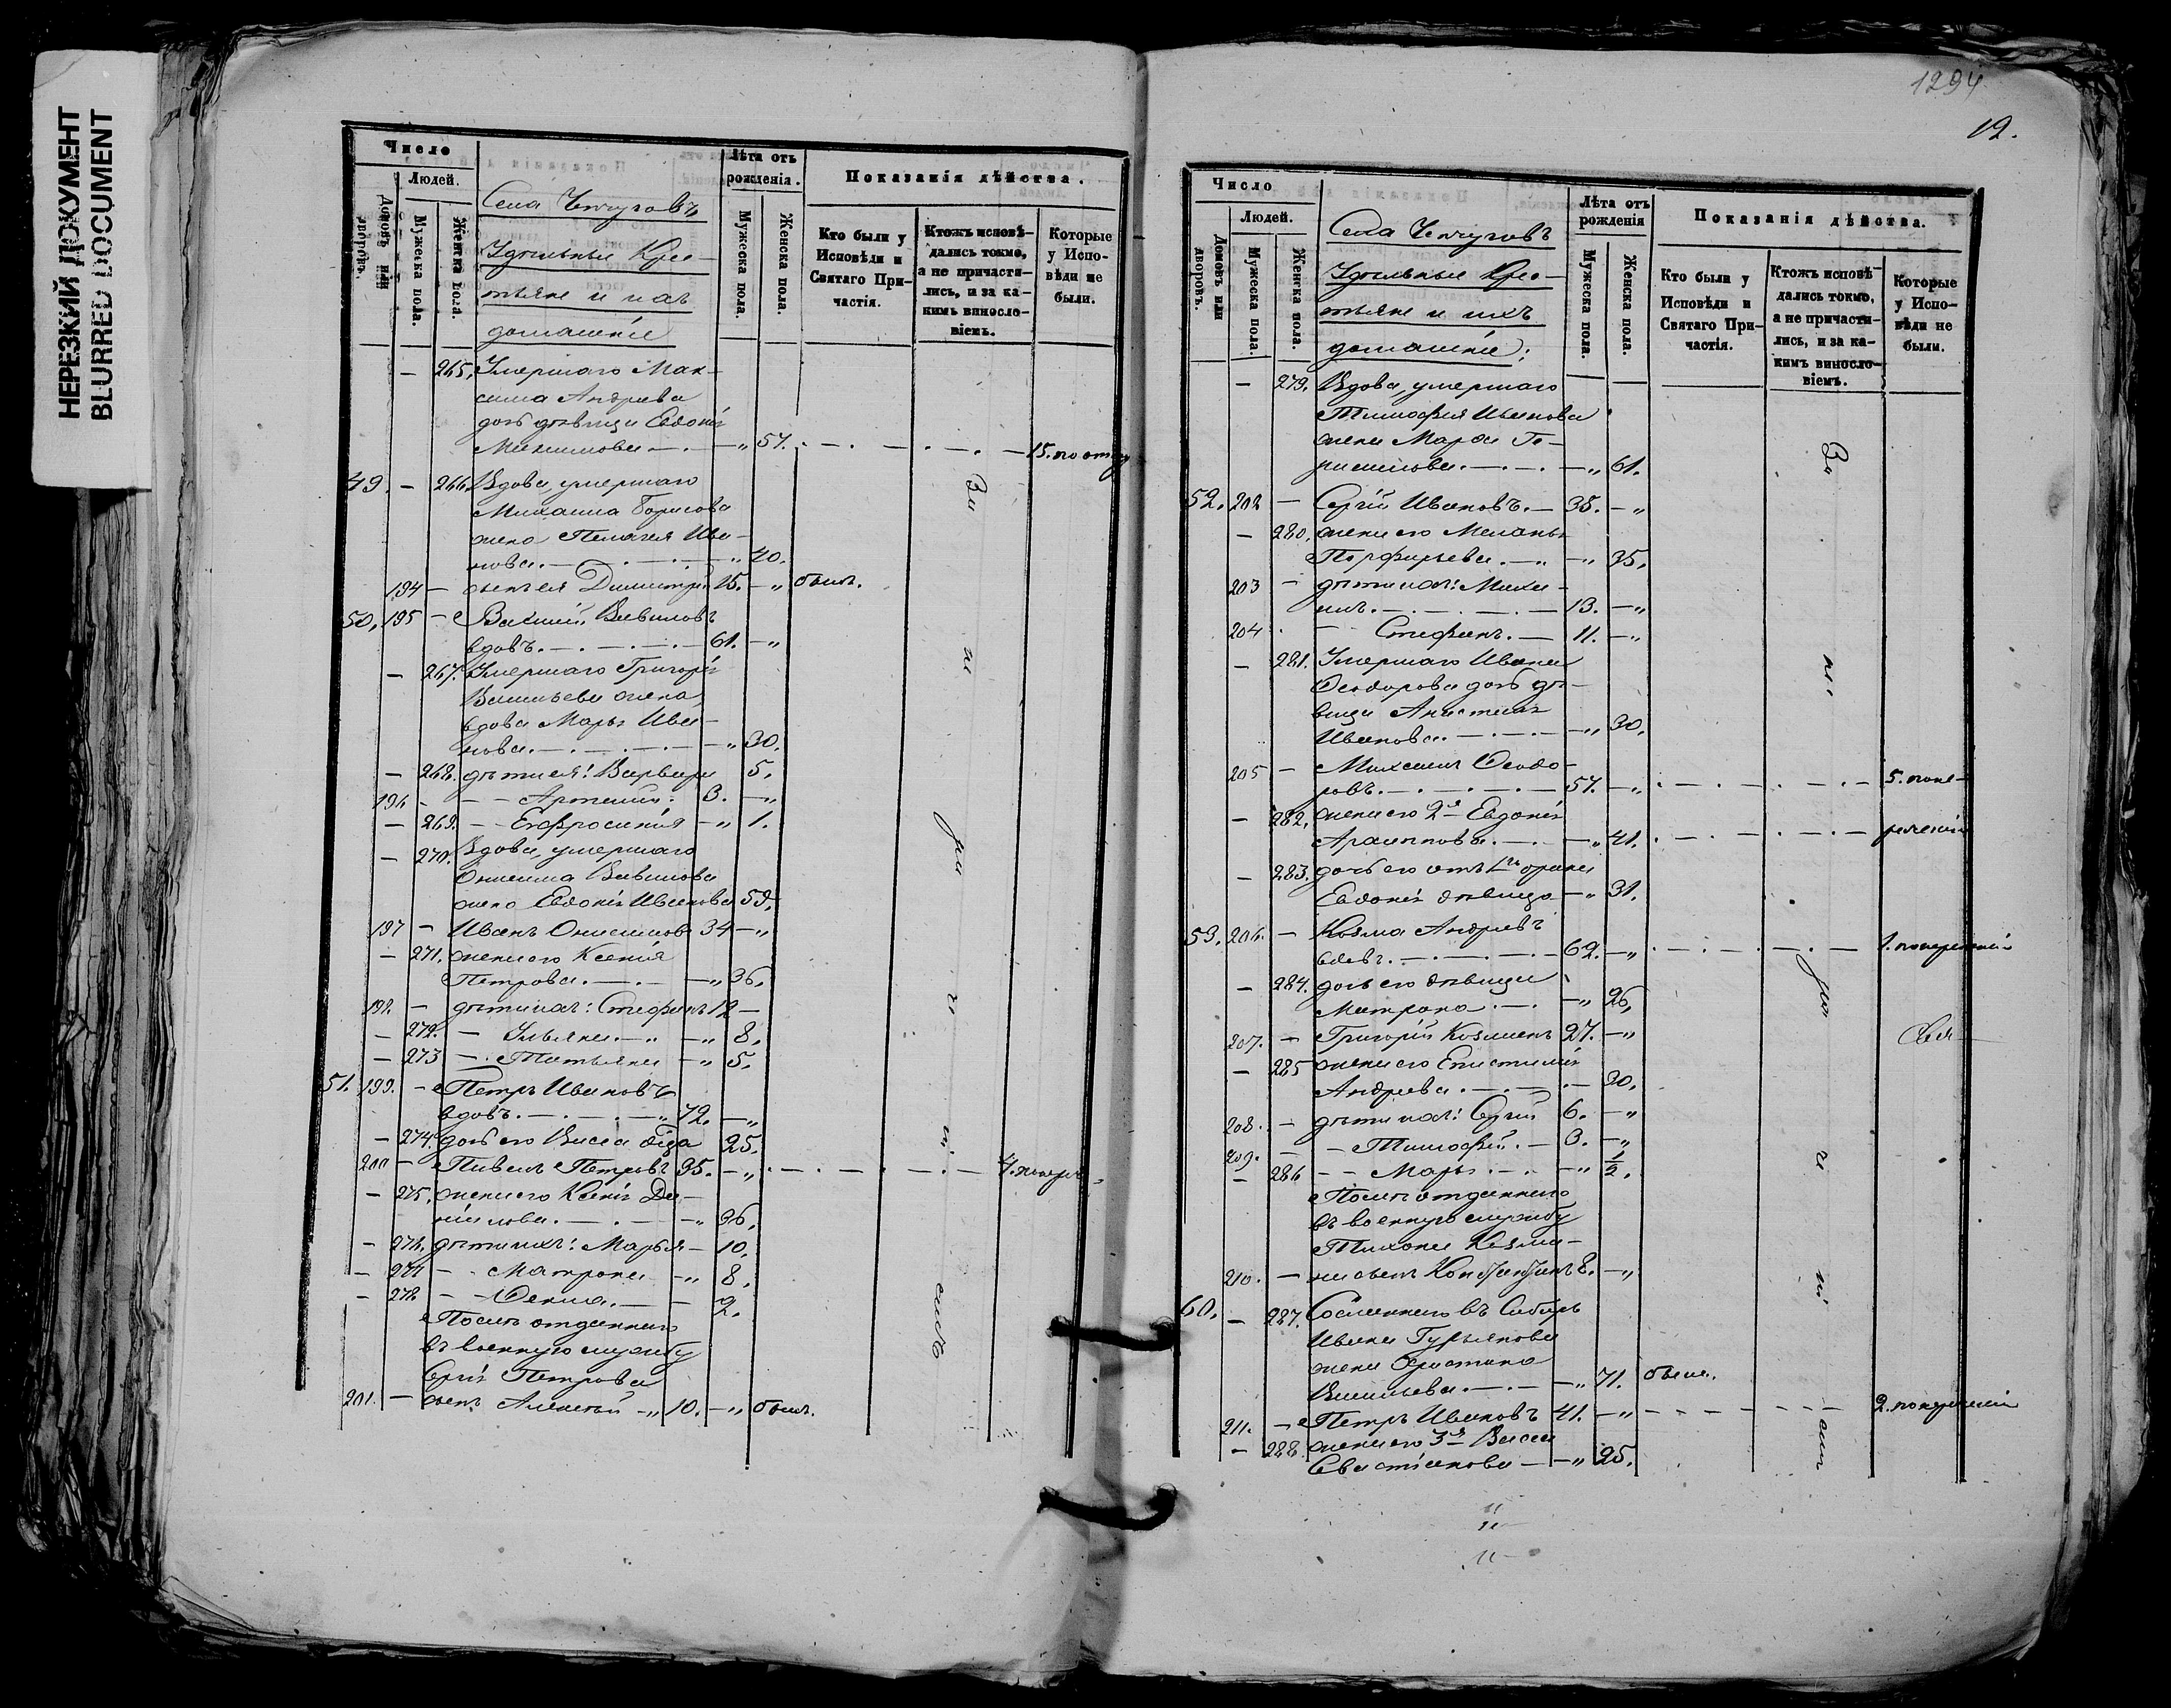 НЕРЕЗКИЙ ДОКУМЕНТ
BLURRED DOCUMENT
Число
Людей.
Домовъ или дворовъ.
Мужеска пола.
Женска пола.
Села
Удѣльные Крес-
тьяне и ихъ
домашніе
Лѣта отъ рожденія.
Мужеска пола.
Женска пола.
Показанія дѣйства.
Кто были у Исповѣди и Святаго При-частія.
Ктожъ исповѣ-дались токмо, а не причасти-лись, и за ка-кимъ винослo-віемъ.
Которые у Испо-вѣди не были.
— 265. Умершаго Мак-
сима Андреева
дочь дѣвица Евдокія
Максимова — „ 57. 15. по
49. — 266. Вдова, умершаго
Михаила Борисова
жена Пелагея Ива-
нова. „ 40.
194 — сынъ ея Димитрій 15. — „ былъ.
50. 195 — Василій Вавиловъ
вдовъ. 61. — „
— 267. Умершаго Григорія
Васильева жена,
вдова Марья Ива-
нова. — „ 30.
— 268. дѣти ея: Варвара 5.
196 — Артемій. 3. — „
— 269. — Евфросинія — „ 1.
— 270. Вдова, умершаго
Онисима Вавилова
жена Евдокія Иванова 59.
197 — Иванъ Онисимовъ 34 — „
— 271. жена его Ксенія
Петрова. — „ 36.
198. — дѣти ихъ: Стефанъ 12 —
— 272. — Ульяна — „ 8.
— 273 — Татьяна — „ 5.
51. 199. — Петръ Ивановъ
вдовъ. 72. — „
— 274. дочь его Васса 25.
200 — Павелъ Петровъ 35. — „ 7. попер.
— 275. жена его Ксенія Да-
ніилова. — „ 36.
— 276. дѣти ихъ: Марья — 10.
— 277 — Матрона — „ 8.
— 278 — 2.
Послѣ отданнаго
въ военную службу
Сергія Петрова
201. — сынъ Алексѣй „ 10. — „ былъ.
1294
12.
Число
Людей.
Домовъ или дворовъ.
Мужеска пола.
Женска пола.
Села
Удѣльные Крес-
тьяне и ихъ
домашніе;
Лѣта отъ рожденія
Мужеска пола.
Женска пола.
Показанія дѣйства.
Кто были у Исповѣди и Святаго При-частія.
Ктожъ исповѣ-дались токмо, а не причасти-лись, и за ка-кимъ винослo-віемъ.
Которые у Испо-вѣди не были.
— 279. Вдова, умершаго
Тимофея Иванова
жена Марфа Ге-
расимова. — „ 61.
52. 202 — Сергій Ивановъ. — 35. — „
— 280. жена его Меланья
Порфирьева. — „ 35.
203 — дѣти ихъ: Миха-
илъ. 13. — „
204 — Стефанъ. — 11. — „
— 281. Умершаго Ивана
Ѳеодорова дочь дѣ-
вица Анастасія
Иванова. — „ 30.
205 — Михаилъ Ѳеодо-
ровъ. 57. — „ 5. попе-
— 282. жена его 2я Евдокія
Архиппова. — „ 41.
— 283. дочь его отъ 1й жены
Евдокія дѣвица — „ 31.
53. 206. — Козма Андреевъ
вдовъ. 62. — „ 1.
— 284. дочь его дѣвица
Матрона — „ 26.
207. — Григорій Козминъ 27. — „
— 285 жена его Епистимія
Андреева. — 30.
208. — дѣти ихъ: Сергій 6. — „
209. — Тимофей. — 3. — „
— 286 — Марья. — „ 1/2.
Послѣ отданнаго
въ военную службу
Тихона Козми-
210. — на сынъ Константинъ 8. — „
60. — 287. Сосланнаго въ Сибирь
Ивана Гурьянова
жена Христина
Васильева. — „ 71. была.
211. — Петръ Ивановъ 41. — „ 2.
— 288. жена его 3я Васса
Севастіанова — „ 25.